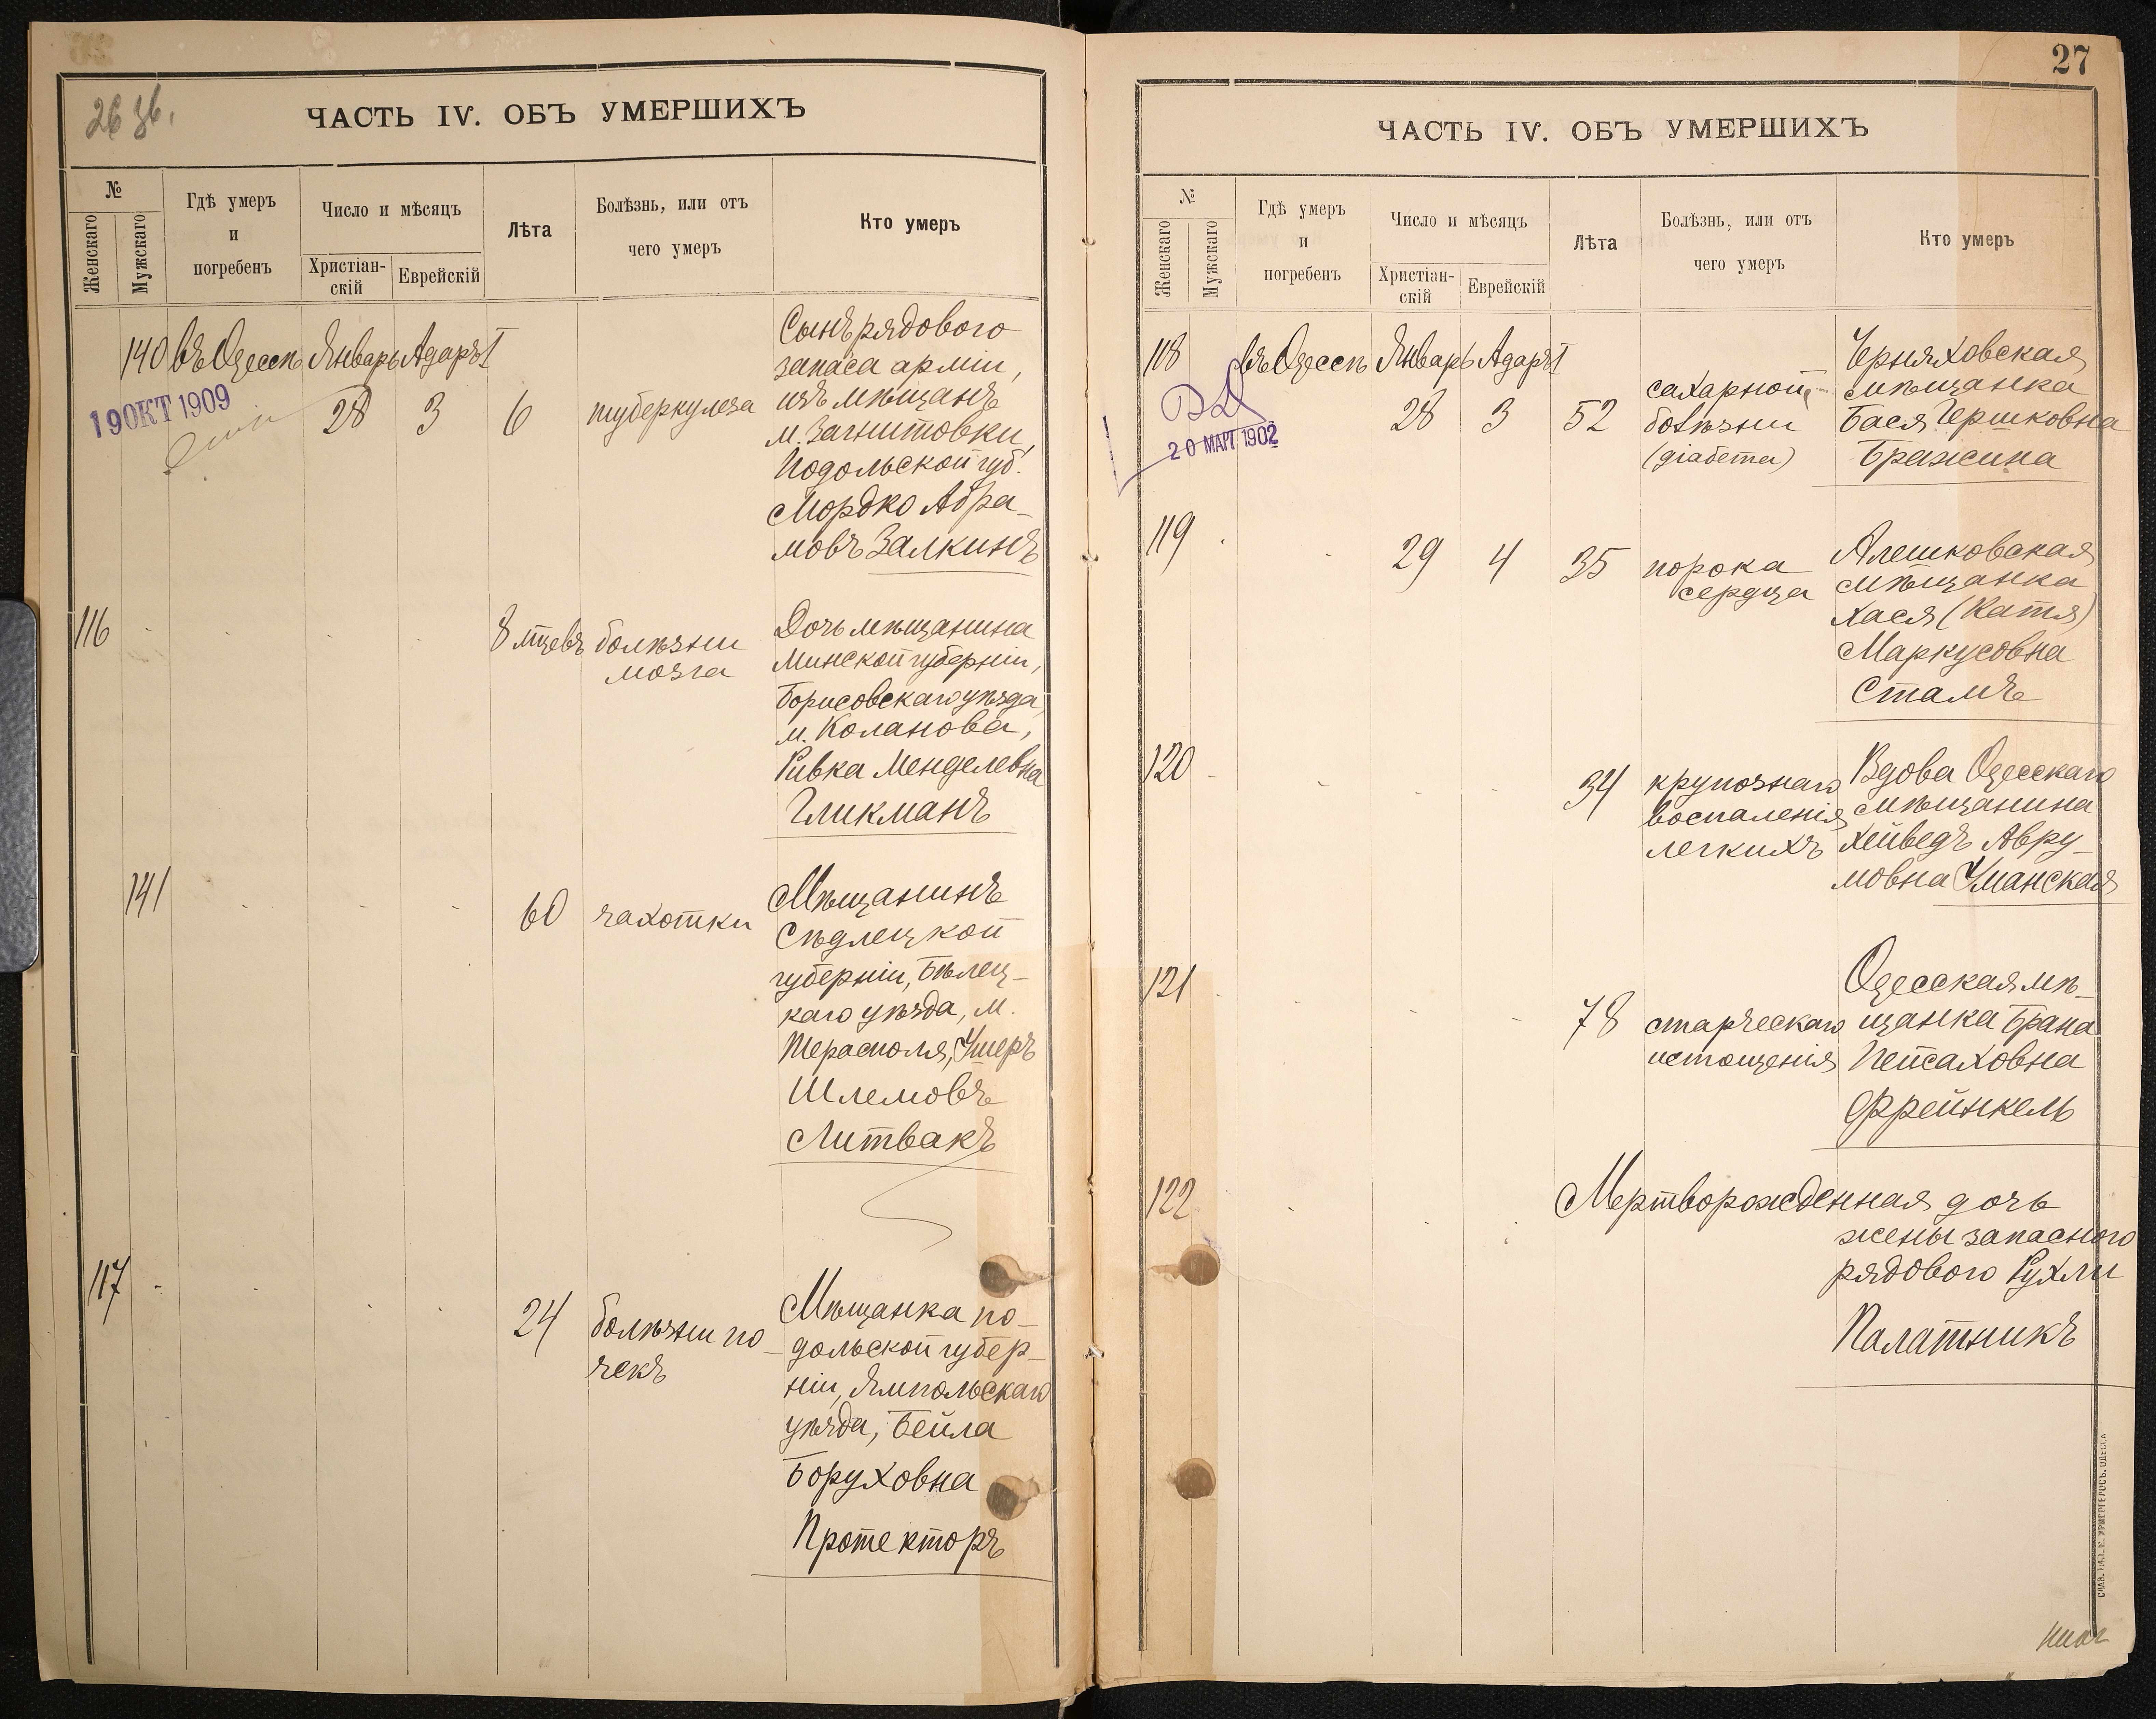 26 об.
ЧАСТЬ IV. ОБЪ УМЕРШИХЪ
№
Женскаго
Мужскаго
Гдѣ умеръ
и
погребенъ
Число и мѣсяцъ
Христіан-
скій
Еврейскій
Лѣта
Болѣзнь, или отъ
чего умеръ
Кто умеръ
140 въ Одессѣ Январь Адаръ I
28 3 6 туберкулеза
Сынъ рядового
запаса арміи,
изъ мѣщанъ
м. Загнитовки,
Подольской губ.
Мордко Абра-
мовъ Залкинъ
19 ОКТ 1909
116
8 мцевъ болѣзни
мозга
Дочь мѣщанина
Минской губерніи,
Борисовскаго уѣзда,
м. Коланова,
Ривка Менделевна
Гликманъ
141
60 чахотки
Мѣщанинъ
Сѣдлецкой
губерніи, Бѣлец-
каго уѣзда, м.
Тересполя, Ушеръ
Шлемовъ
Литвакъ
117
24 болѣзни по-
чекъ
Мѣщанка по-
дольской губер-
ніи, Ямпольскаго
уѣзда, Бейла
Боруховна
Протекторъ
27
ЧАСТЬ IV. ОБЪ УМЕРШИХЪ
№
Женскаго
Мужскаго
Гдѣ умеръ
и
погребенъ
Число и мѣсяцъ
Христіан-
скій
Еврейскій
Лѣта
Болѣзнь, или отъ
чего умеръ
Кто умеръ
118 въ Одессѣ Январь Адаръ I
28 3 52
сахарной
болѣзни
(діабета)
Черняховская
мѣщанка
Бася Гершковна
Бражина
20 МАРТ 1902
119
29 4 35 порока
сердца
Алешковская
мѣщанка
Хася (Катя)
Маркусовна
Стамъ
120
34 крупознаго
воспаленія
легкихъ
Вдова Одесскаго
мѣщанина
Хейведъ Авру-
мовна Уманская
121
78 старческаго
истощенія
Одесская мѣ-
щанка Брана
Пейсаховна
Фрейнкель
122
Мертворожденная дочь
жены запасного
рядового Рухли
Палатникъ